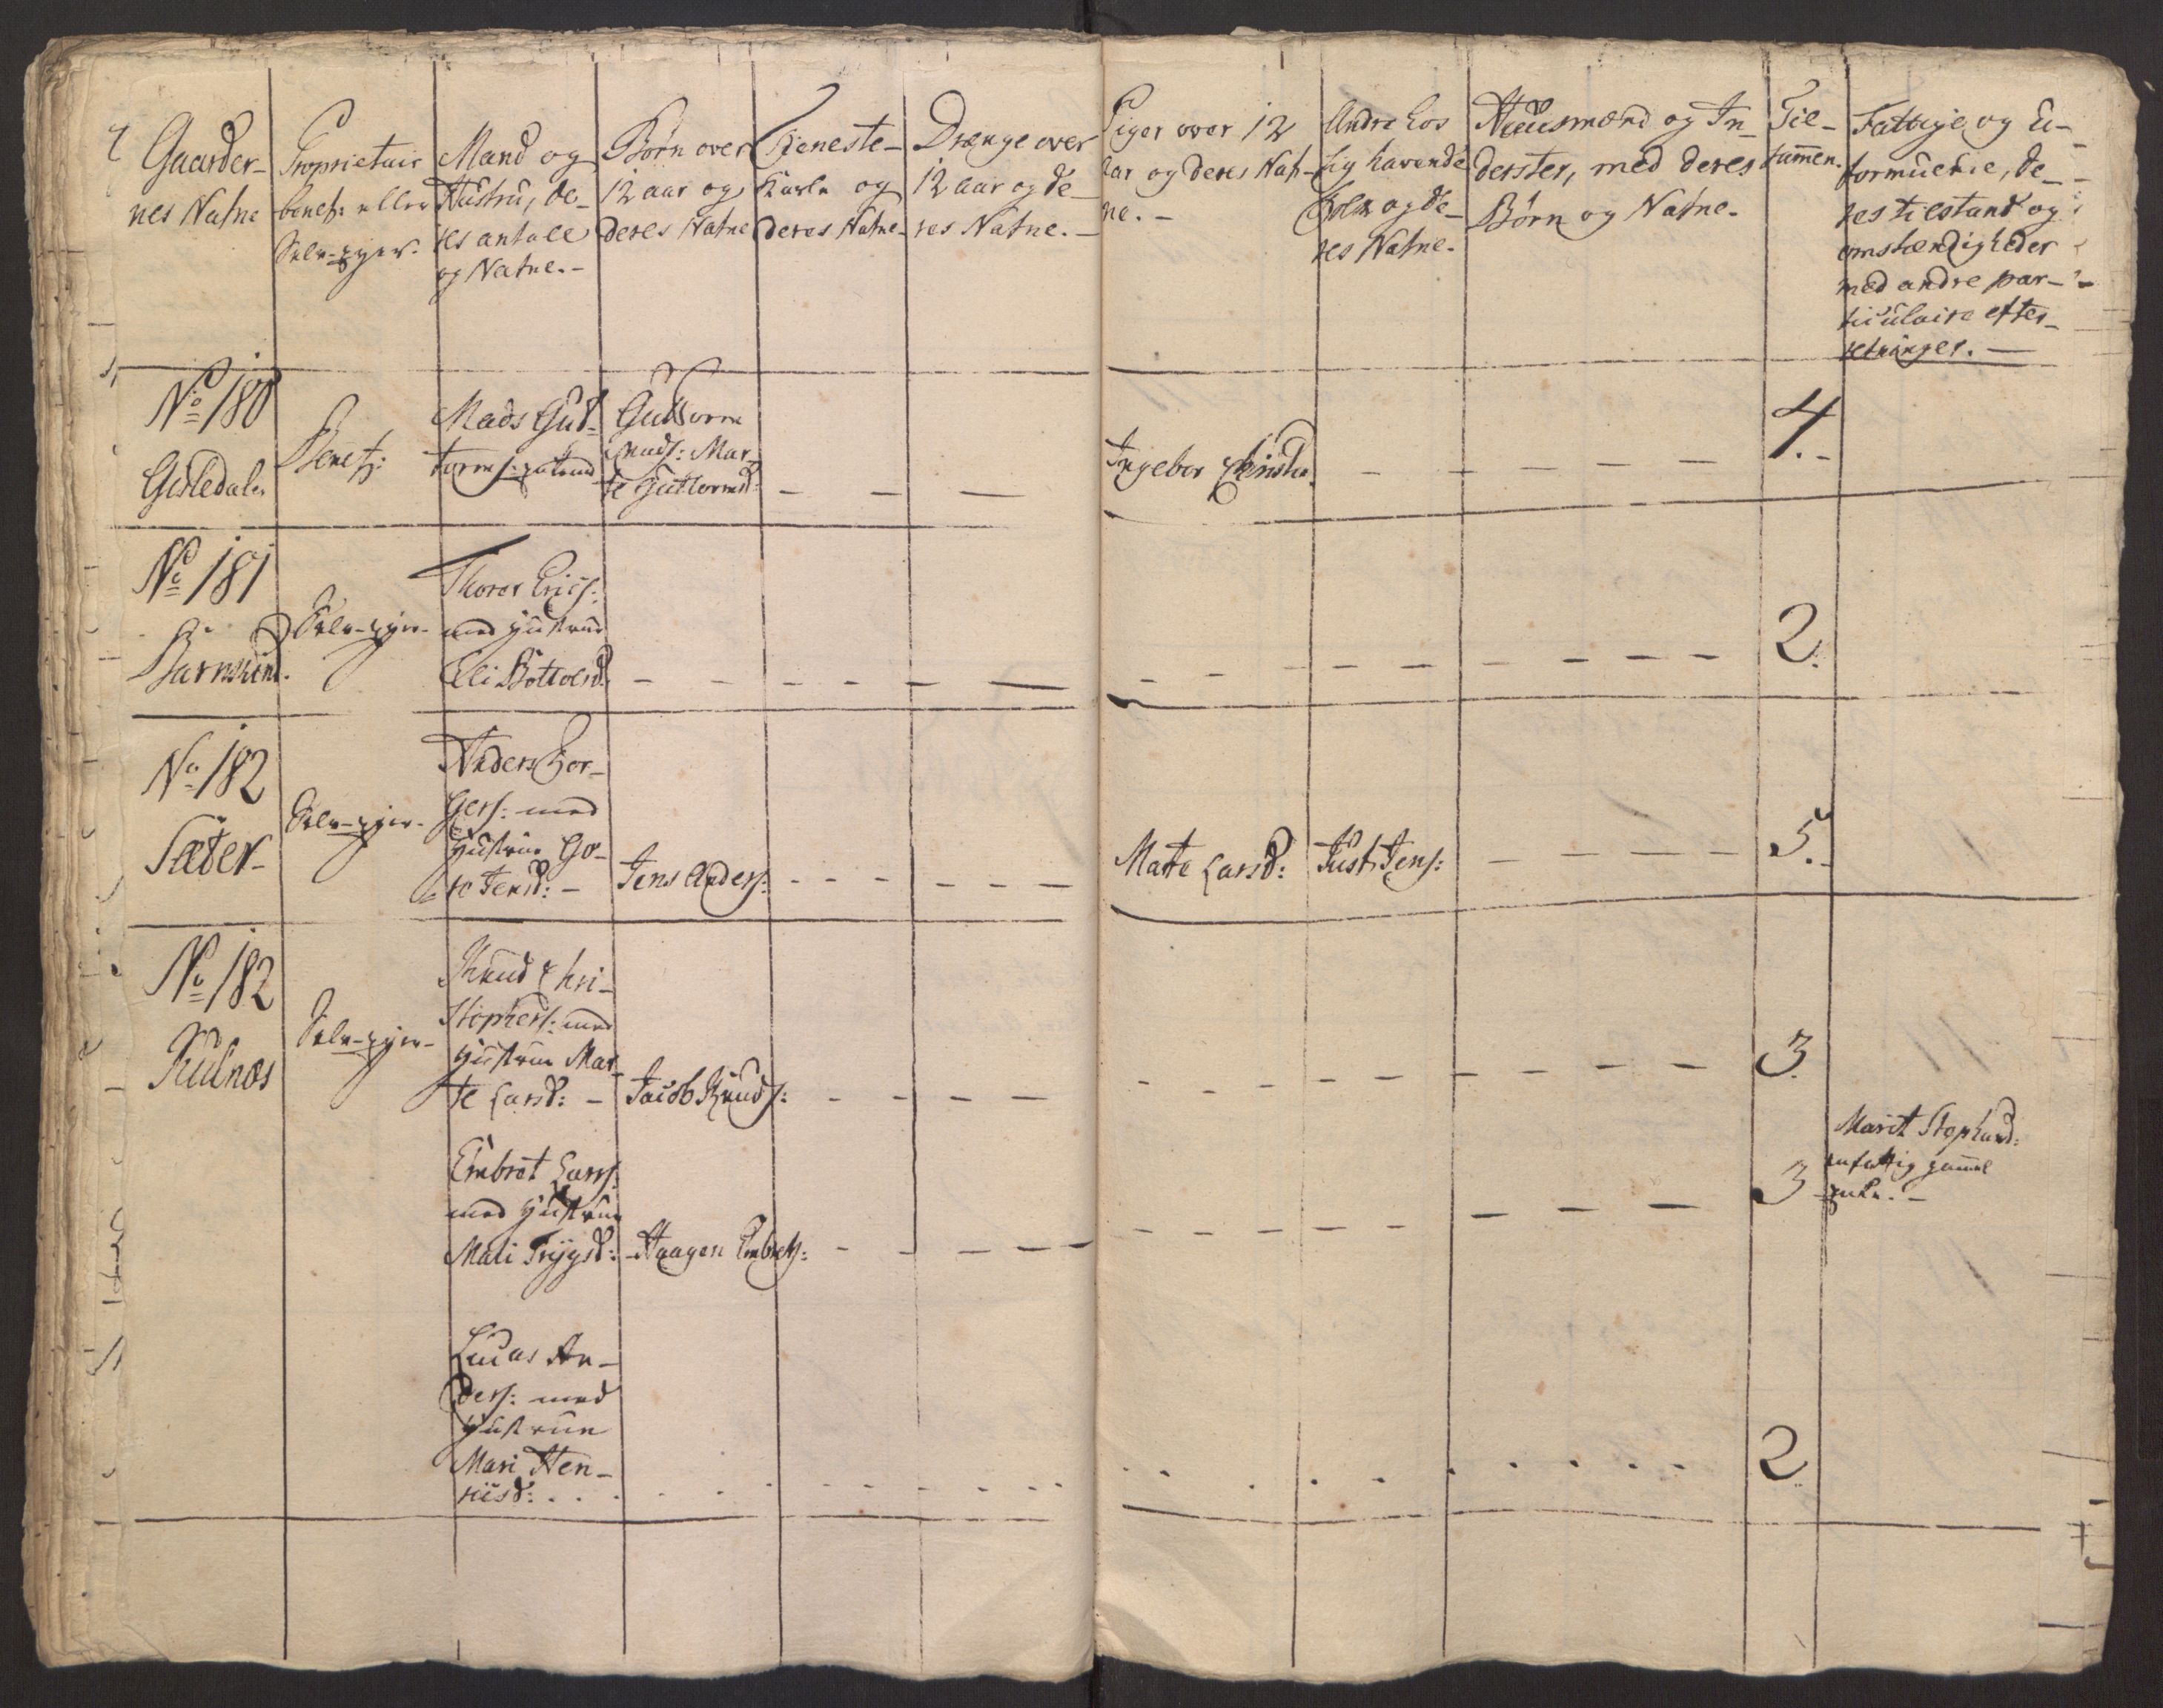 Gaarder-
nes Nafne
Proprietair
benef: eller
Selv-eyer.
Mand og
Hustru, de-
res antall
og Nafne.-
Børn over
12 aar og
deres Nafne
Tieneste-
Karle og
deres Nafne-
Drænge over
12 aar og de-
res Nafne.-
Piger over 12
aar og deres Naf-
ne.-
Andre hos
sig havende
Folk og de-
res Nafne.
Huusmænd og In-
derster, med deres
Børn og Nafne.
Til-
sammen.
Fattige og U-
formuende, de-
res tilstand og
omstændigheder
med andre par-
ticulaire efter-
retninger.-
No 180
Gisledalen
Benef:
Mads Gut-
torms: enkemd
Guttorm
Mads: Mar-
te Guttormsd:
Ingebor Christ
4.-
No 181
Selv-eyer-
Thorer Erics:
med Hustrue
Eli Bottolsd:
2.
No 182
Sæter-
Selv-eyer-
Anders Bor-
gers: med
Hustrue Go-
ro Jensd:-
Jens Anders:
Marte Larsd:
Just Jens:
5.-
No 182
Kulnæs
Selv-eyer-
Knud Chri-
stophers: med
Hustrue Mar-
te Larsd:-
Jacob Knuds:
3.
Embret Lars:
med Hustrue
Mari Trygsd:
Haagen Embrets:
3
Marit Stephend:
en fattig gammel
enke.-
Lucas An-
ders: med
Hustrue
Mari Hen-
ricsd:
2.